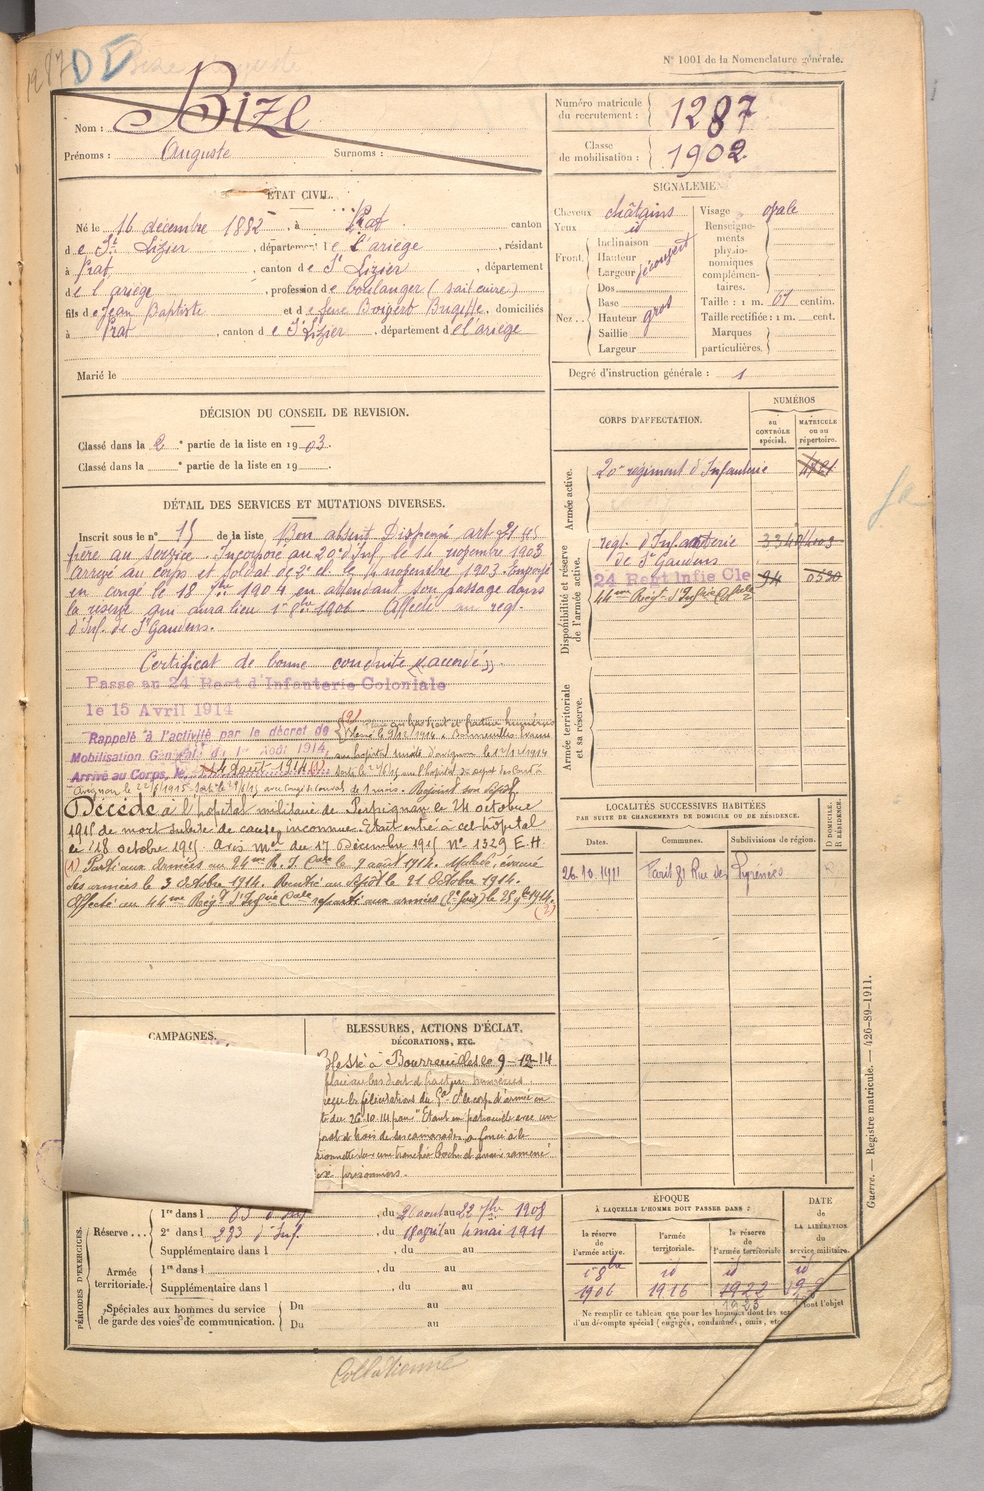 1287
N° 1001 de la Nomenclature générale.
Nom : BIZE
Prénoms : Auguste Surnoms :
Numéro matricule du recrutement : 1287
Classe de mobilisation : 1902
ÉTAT CIVIL.
Né le 16 décembre 1882, à Prat canton
de St Lizier, département de l'ariège, résidant
à Prat, canton de St Lizier, département
de l'ariège, profession de boulanger (sait cuire)
fils de Jean Baptiste et de feue Brigitte, domiciliés
à Prat, canton de St Lizier, département de l'ariège
Marié le
SIGNALEMENT
Cheveux châtains
Yeux id
Front.
Inclinaison
Hauteur
Largeur découvert
Nez..
Dos
Base
Hauteur gros
Saillie
Largeur
Visage ovale
Renseignements physionomiques complémentaires.
Taille : 1 m. 61 centim.
Taille rectifiée : 1 m. cent.
Marques particulières.
Degré d'instruction générale : 1
DÉCISION DU CONSEIL DE REVISION.
Classé dans la 2e partie de la liste en 1903.
Classé dans la e partie de la liste en 19 .
DÉTAIL DES SERVICES ET MUTATIONS DIVERSES.
Inscrit sous le n° 15 de la liste Bon absent Dispensé art. 21
frère au service. Incorporé au 20e d'Inf, le 14 novembre 1903
Arrivé au corps et soldat de 2e cl. le novembre 1903. Envoyé
en congé le 18 7bre 1904 en attendant son passage dans
la réserve qui aura lieu 1er 1906. Affecté au régt.
d'Inf. de St Gaudens.
Certificat de bonne conduite "accordé".
Passé au 24 Regt d'Infanterie Coloniale
le 15 Avril 1914
Rappelé à l'activité par le décret de
Mobilisation Générale du 1er Août 1914,
Arrivé au Corps, le 4 août 1914 (1)
(2)
Décédé à l'hôpital militaire de Perpignan le 24 octobre
1915 de mort subite de cause inconnue. Etait entré à cet hôpital
le 18 octobre 1915. Avis Mel du 17 Décembre 1915 N° 1329 E.H.
(1) Parti aux armées au 24me R. I. Cale le 9 août 1914. Malade, évacué
des armées le 3 octobre 1914. Rentré au dépôt le 21 octobre 1914.
Affecté au 44me Régt d'Infie Cale reparti aux armées (2e fois) le 28 9bre 1914.
(2)
CORPS D'AFFECTATION.
NUMÉROS
au CONTRÔLE spécial.
MATRICULE ou au répertoire.
Armée active.
20e régiment d'Infanterie 4721
Disponibilité et réserve de l'armée active.
régt. d'Infanterie
de St Gaudens
24 Regt Infie Cle 94 0530
44me Régt d'Infie Cale
Armée territoriale et sa réserve.
LOCALITÉS SUCCESSIVES HABITÉES
PAR SUITE DE CHANGEMENTS DE DOMICILE OU DE RÉSIDENCE.
Dates. Communes. Subdivisions de région.
D DOMICILE. R RÉSIDENCE.
26.10.1911 Paris 81 Rue des Pyrénées
CAMPAGNES.
BLESSURES, ACTIONS D'ÉCLAT,
DÉCORATIONS, ETC.
Blessé à Boureuilles le 9-12-14
plaie au bras droit et fracture humérus.
félicitations du Gal Ct le corps d'armée en
"Etant en patrouille avec un
et trois de ses camarades, a foncé à la
baïonnette sur une tranchée boche et a ramené
prisonniers.
PÉRIODES D'EXERCICES.
Réserve...
1re dans l 83 d'Inf, du 26 août au 22 7bre 1908
2e dans l 283 d'Inf., du 18 avril au 4 mai 1911
Supplémentaire dans l , du au
Armée territoriale.
1re dans l , du au
Supplémentaire dans l , du au
Spéciales aux hommes du service de garde des voies de communication.
Du au
Du au
ÉPOQUE
À LAQUELLE L'HOMME DOIT PASSER DANS :
la réserve de l'armée active.
l'armée territoriale.
la réserve de l'armée territoriale
DATE de LA LIBÉRATION du service militaire.
1906 1916 1922
Ne remplir ce tableau que pour les hommes dont les ser
d'un décompte spécial (engagés, condamnés, omis, etc
font l'objet
Guerre. — Registre matricule. — 426-89-1911.
Collationné